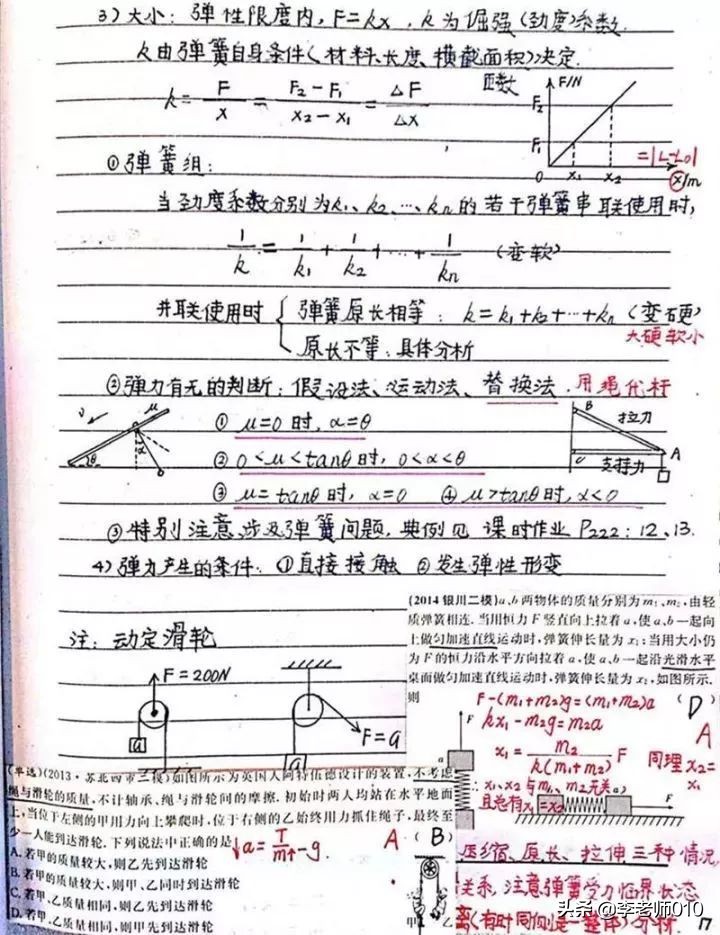 3)大小: 弹性限度内, F=kx, k为倔强(劲度)系数.
k由弹簧自身条件(材料、长度、横截面积)决定.
k = F/x = (F₂-F₁)/(x₂-x₁) = ΔF/Δx
正数
F/N
F₂
F₁
0 x₁ x₂ x/m
=|L-L0|
①弹簧组:
当劲度系数分别为k₁、k₂、…、kn的若干弹簧串联使用时,
1/k = 1/k₁ + 1/k₂ +…+ 1/kn (变软)
并联使用时 { 弹簧原长相等: k=k₁+k₂+…+kn (变硬)
原长不等:具体分析
大硬软小
②弹力有无的判断: 假设法、运动法、替换法. 用绳代杆
① μ=0时, α=θ
② 0<μ<tanθ时, 0<α<θ
③ μ=tanθ时, α=0 ④ μ>tanθ时, α<0
v μ
θ α
B 拉力
A
C 支持力
③特别注意涉及弹簧问题, 典例见 课时作业 P222: 12、13.
4)弹力产生的条件: ①直接接触 ②发生弹性形变
注: 动定滑轮
F=200N
a
F=a
a
(2014 银川二模)a、b两物体的质量分别为m₁、m₂,由轻
质弹簧相连.当用恒力F竖直向上拉着a,使a、b一起向
上做匀加速直线运动时,弹簧伸长量为x₁;当用大小仍
为F的恒力沿水平方向拉着a,使a、b一起沿光滑水平
桌面做匀加速直线运动时,弹簧伸长量为x₂,如图所示.
则
( D )
F-(m₁+m₂)g=(m₁+m₂)a
A
kx₁-m₂g=m₂a
x₁= m₂/(k(m₁+m₂)) F
同理 x₂=x₁
∴x₁与x₂与m₁、m₂无关
且总有x₁=x₂
F
a
F
(单选)(2013·苏北四市三模)如图所示为英国人阿特伍德设计的装置,不考虑
绳与滑轮的质量,不计轴承、绳与滑轮间的摩擦.初始时两人均站在水平地面
上,当位于左侧的甲用力向上攀爬时,位于右侧的乙始终用力抓住绳子,最终至
少一人能到达滑轮.下列说法中正确的是
a= T/m -g.
A.
( B )
A.若甲的质量较大,则乙先到达滑轮
B.若甲的质量较大,则甲、乙同时到达滑轮
C.若甲、乙质量相同,则乙先到达滑轮
D.若甲、乙质量相同,则甲先到达滑轮
甲 乙
压缩、原长、拉伸三种情况
关系, 注意弹簧受力临界状态
离(有时同侧是一整体)分析.
17
头条@李老师010